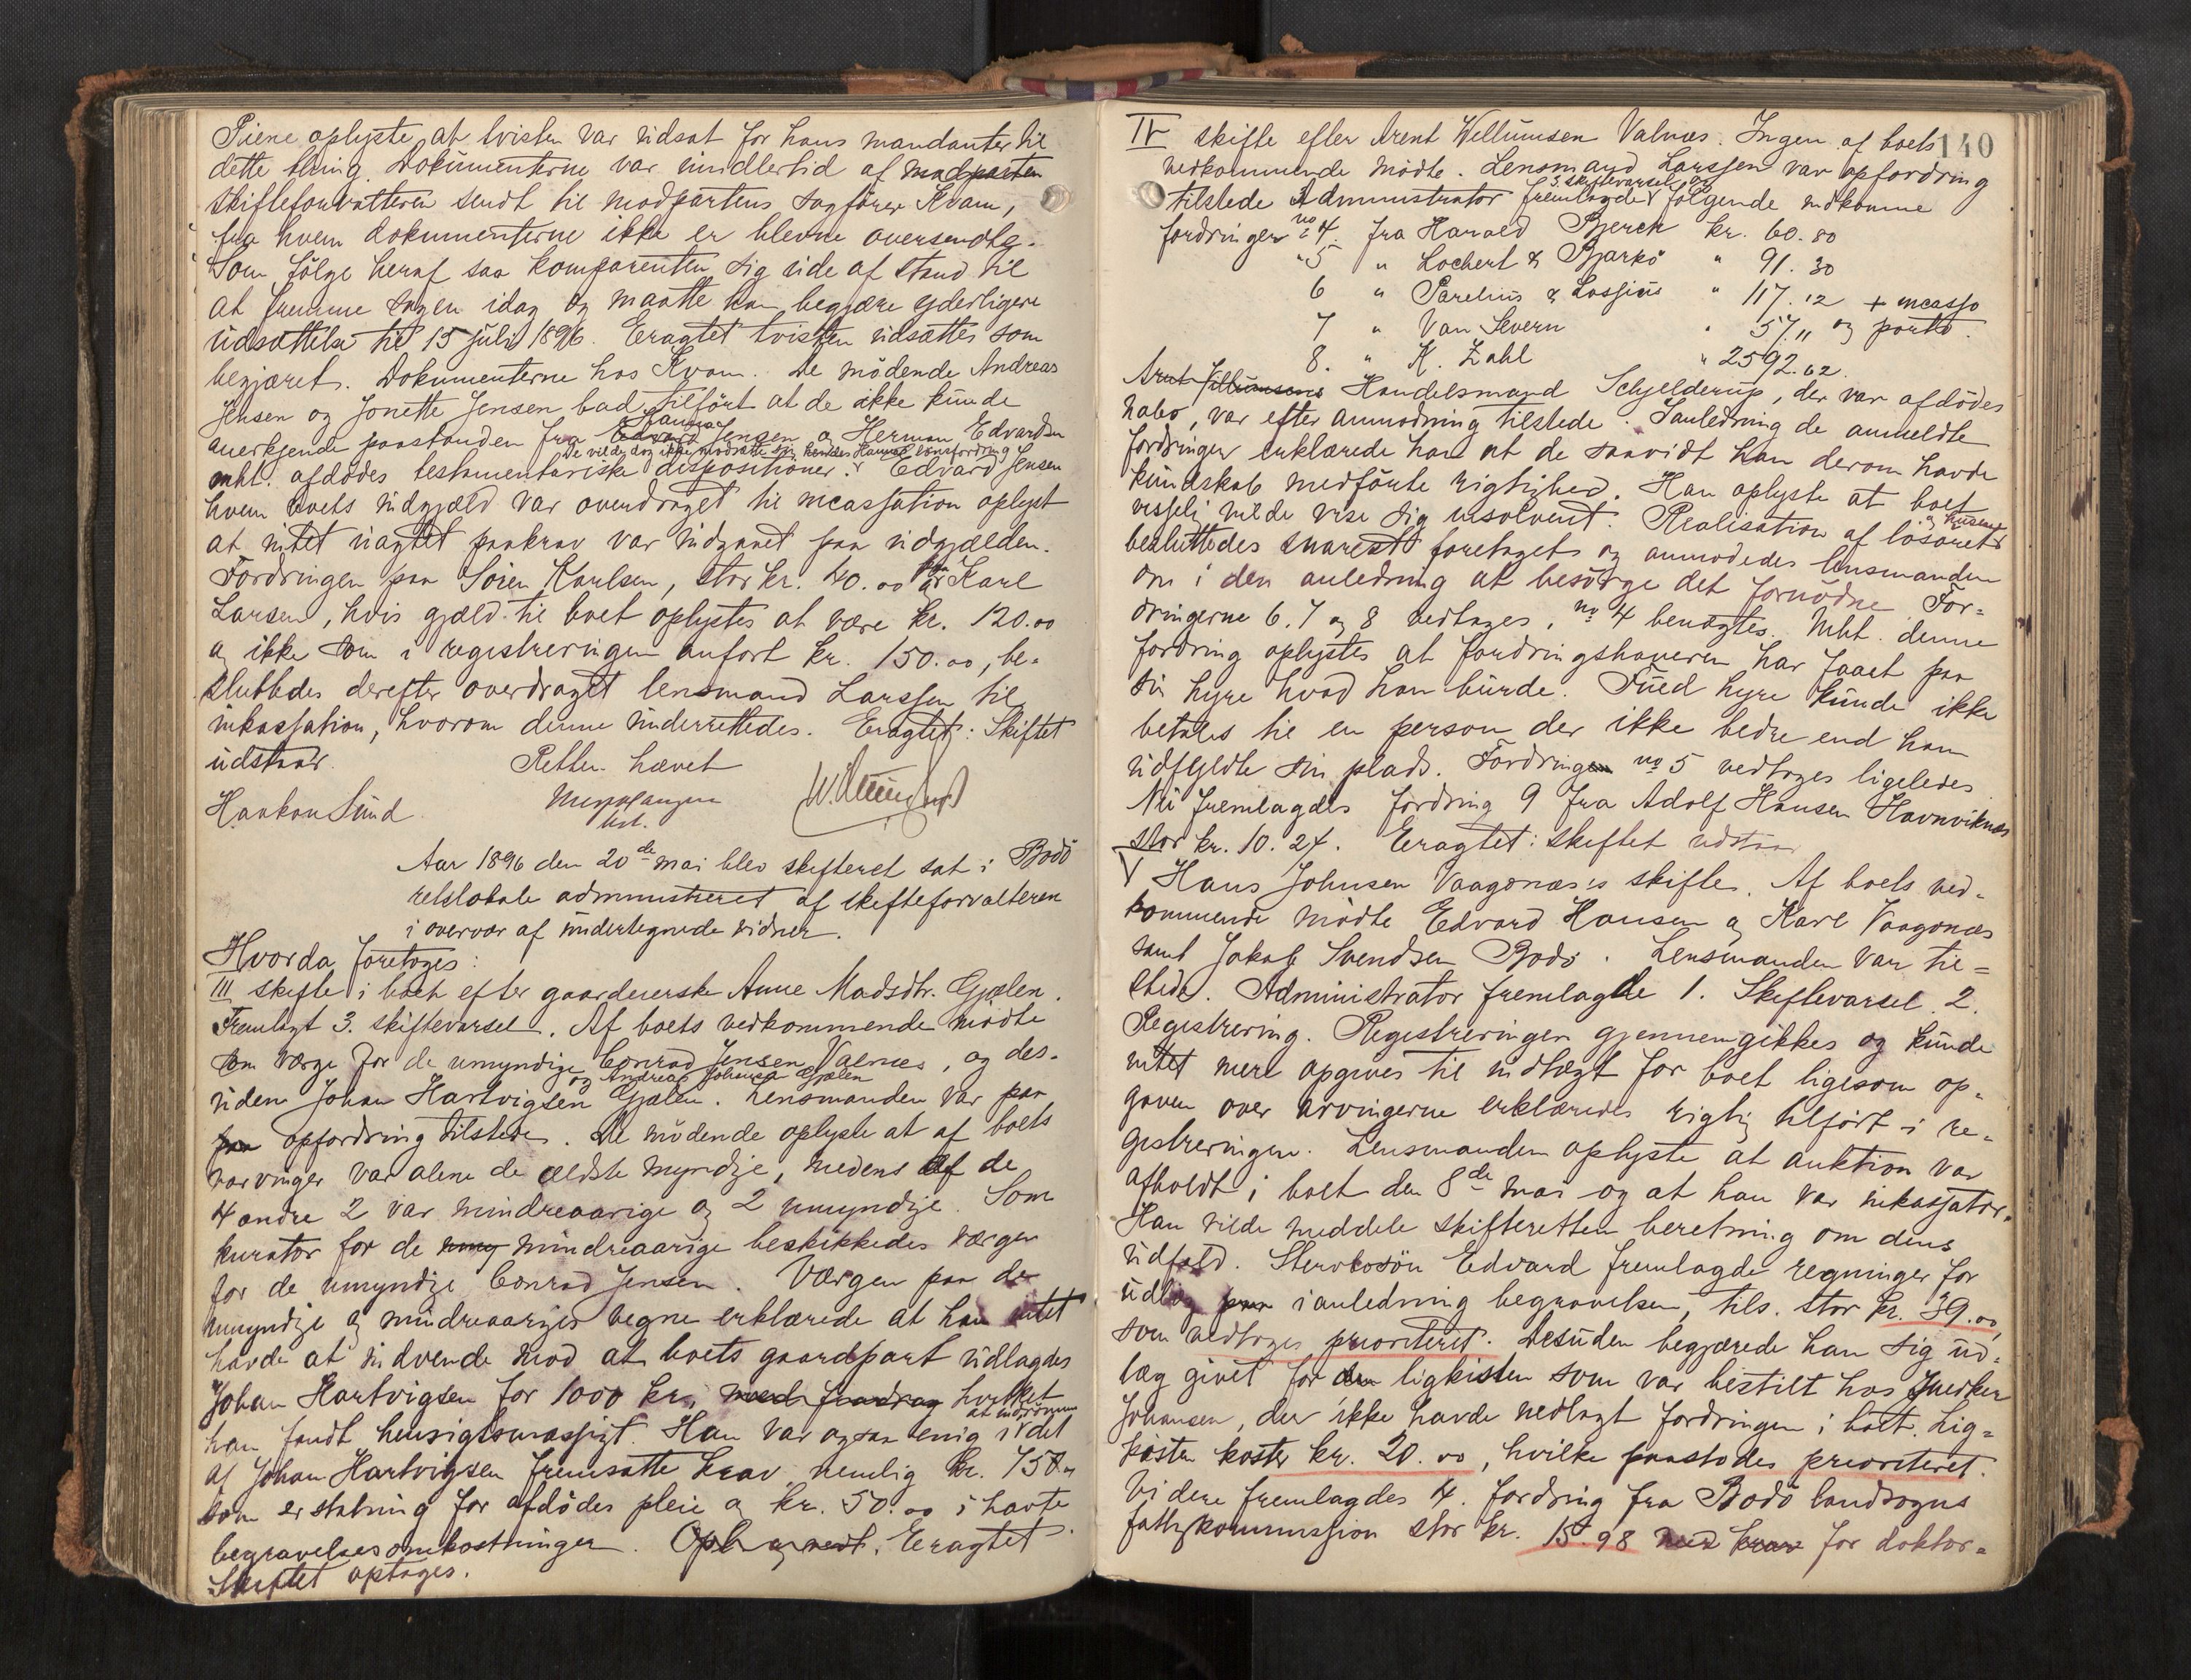 Piene oplyste at tvisten var udsat for hans mandanter til
dette thing. Dokumenterne var imidlertid af modparten
skifteforvalteren sendt til modpartens sagfører Kvam,
fra hvem dokumenterne ikke er blevne oversendte.
Som følge heraf saa komparenten sig ude af stand til
at fremme sagen idag og maatte han begjære yderligere
udsættelse til 15 juli 1896. Eragtet tvisten udsættes som
begjæret. Dokumenterne hos Kvam. De mødende Andreas
Jensen og Jonette Jensen bad tilført at de ikke kunde
anerkjende paastanden fra Edvard Hanna Jensen og Herman Edvardsen
De vilde dog ikke modsætte sig hendes Hannas lønsfordring
mht. afdødes testamentariske dispositioner. Edvard Jensen
hvem boets udgjæld var overdraget til incassation oplyst
at intet uagtet paakrav var indgaaet paa udgjælden.
Fordringen paa Søren Karlsen, stor kr. 40.00 og Karl
Larsen, hvis gjæld til boet oplystes at være kr. 120.00
og ikke som i registreringen anført kr. 150.00, be-
sluttedes derefter overdraget lensmand Larssen til
inkassation, hvorom denne underrettedes. Eragtet: Skiftet
udstaar.
Retten hævet
Haakon Lund
Aar 1896 den 20de mai blev skifteret sat i Bodø
retslokale administreret af skifteforvalteren
i overvær af undertegnede vidner.
Hvorda foretoges:
III skifte i boet efter gaardeierske Anne Madsdtr. Gjælen.
Fremlagt 3. skiftevarsel. Af boets vedkommende mødte
som værge for de umyndige Conrad Jensen Valnes, og des-
og Andreas Johnsen Gjælen
uden Johan Hartvigsen Gjælen. Lensmanden var paa
paa opfordring tilstede. De mødende oplyste at af boets
arvinger var alene de ældste myndige, medens af de
4 andre 2 var mindreaarige og 2 umyndige. Som
kurator for de umy mindreaarige beskikkedes værgen
for de umyndige Conrad Jensen. Værgen paa de
umyndige og mindreaariges vegne erklærede at han intet
havde at indvende mod at boets gaardpart udlagdes
Johan Hartvigsen for 1000 kr, med fradrag hvilket
han fandt hensigtsmæssigt. Han var ogsaa enig i at indrømme det
af Johan Hartvigsen fremsatte krav nemlig kr. 750 „
som erstatning for afdødes pleie og kr. 50.00 i havte
begravelsesomkostninger. Opl. og vedt. Eragtet
Skiftet optages.
140
IV skifte efter Arent Wellumsen Valnæs. Ingen af boets
vedkommende mødte. Lensmand Larssen var opfordring
tilstede Administrator fremlagde 3. skiftevarsel og følgende indkomne
fordringer no 4. fra Harald Bjerck kr. 60.80
" 5 " Lochert & Bjarkø " 91.30
6 " Parelius & Lossius " 117.12 + incasso
7 " Van Severn " 57 „ og porto.
8. " K. Zahl " 2592.62.
Arnt Jillumsens Handelsmand Schjelderup, der var afdødes
nabo, var efter anmodning tilstede. I anledning de anmeldte
fordringer erklærede han at de saavidt han derom havde
kundskab medførte rigtighed. Han oplyste at boet
visselig vilde vise sig insolvent. Realisation af løsøret og husene
besluttedes snarest foretaget og anmodedes lensmanden
om i den anledning at besørge det fornødne. For-
dringerne 6. 7 og 8 vedtages, no 4 benægtes. Mht. denne
fordring oplystes at fordringshaveren har faaet paa
sin hyre hvad han burde. Fuld hyre kunde ikke
betales til en person der ikke bedre end han
udfyldte sin plads. Fordringen no 5 vedtoges ligeledes.
Nu fremlagdes fordring 9 fra Adolf Hansen Havnviknæs
stor kr. 10.24. Eragtet: skiftet udstaar
V Hans Johnsen Vaagønæs's skifte. Af boets ved-
kommende mødte Edvard Hansen og Karl Vaagønæs
samt Jakob Svendsen Bodø. Lensmanden var til-
stede. Administrator fremlagde 1. Skiftevarsel 2.
Registrering. Registreringen gjennemgikkes og kunde
intet mere opgives til indtægt for boet ligesom op-
gaven over arvingerne erklæredes rigtig tilført i re-
gistreringen. Lensmanden oplyste at auktion var
afholdt i boet den 8de mai og at han var inkassator.
Han vilde meddele skifteretten beretning om dens
udfald. Stervbosøn Edvard fremlagde regninger for
udlæg paa i anledning begravelsen, tils. stor kr. 39.00,
som vedtoges prioriteret. Desuden begjærede han sig ud-
læg givet for den ligkisten som var bestilt hos snedker
Johansen, der ikke havde nedlagt fordringen i boet. Lig-
kisten koster kr. 20.00, hvilke paastodes prioriteret.
Videre fremlagdes 4. fordring fra Bodø landsogns
fattigkommission stor kr. 15.98 med krav for doktor-